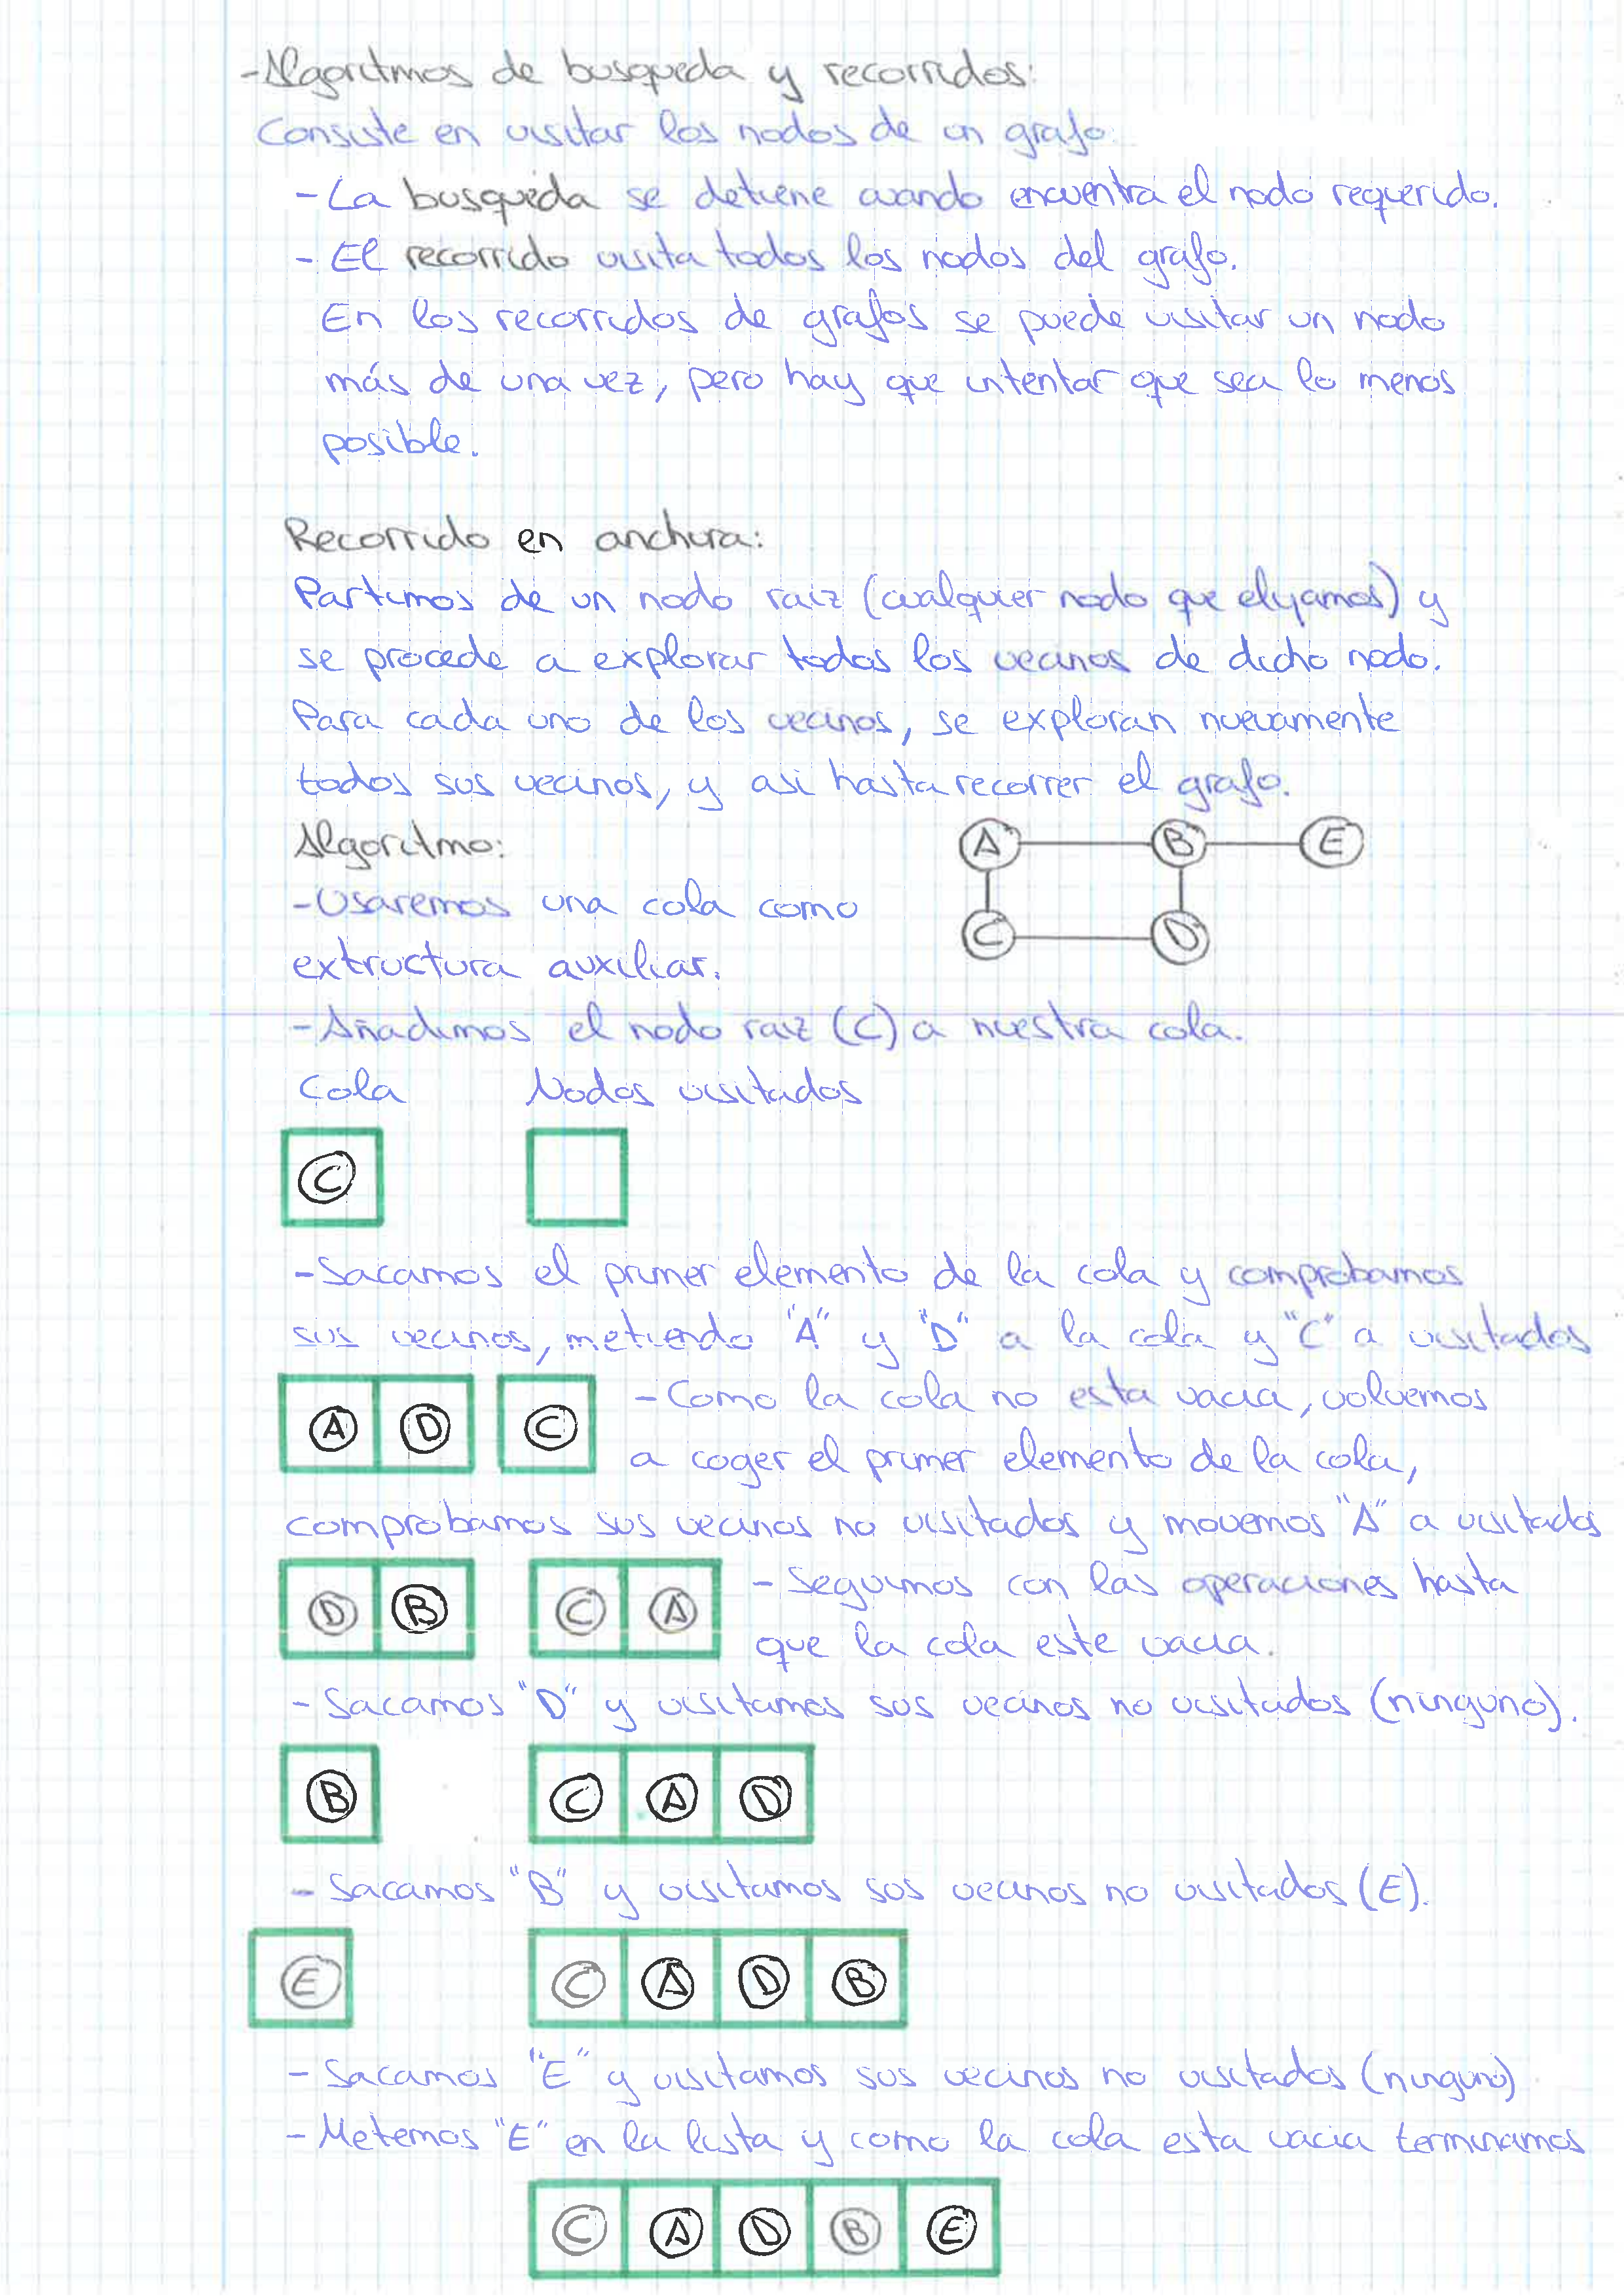 -Algoritmos de busqueda y recorridos:
Consiste en visitar los nodos de un grafo.
-La busqueda se detiene cuando encuentra el nodo requerido.
- El recorrido visita todos los nodos del grafo.
En los recorridos de grafos se puede visitar un nodo
más de una vez, pero hay que intentar que sea lo menos
posible.
Recorrido en anchura:
Partimos de un nodo raiz (cualquier nodo que elijamos) y
se procede a explorar todos los vecinos de dicho nodo.
Para cada uno de los vecinos, se exploran nuevamente
todos sus vecinos, y asi hasta recorrer el grafo.
Algoritmo:
A B E
-Usaremos una cola como
C D
extructura auxiliar.
-Añadimos el nodo raiz (C) a nuestra cola.
Cola Nodos visitados
C
-Sacamos el primer elemento de la cola y comprobamos
sus vecinos, metiendo "A" y "D" a la cola y "C" a visitados
A D C -Como la cola no esta vacia, volvemos
a coger el primer elemento de la cola,
comprobamos sus vecinos no visitados y movemos "A" a visitados
D B C A - Seguimos con las operaciones hasta
que la cola este vacia.
- Sacamos "D" y visitamos sus vecinos no visitados (ninguno).
B C A D
- Sacamos "B" y visitamos sus vecinos no visitados (E).
E C A D B
- Sacamos "E" y visitamos sus vecinos no visitados (ninguno)
- Metemos "E" en la lista y como la cola esta vacia terminamos
C A D B E